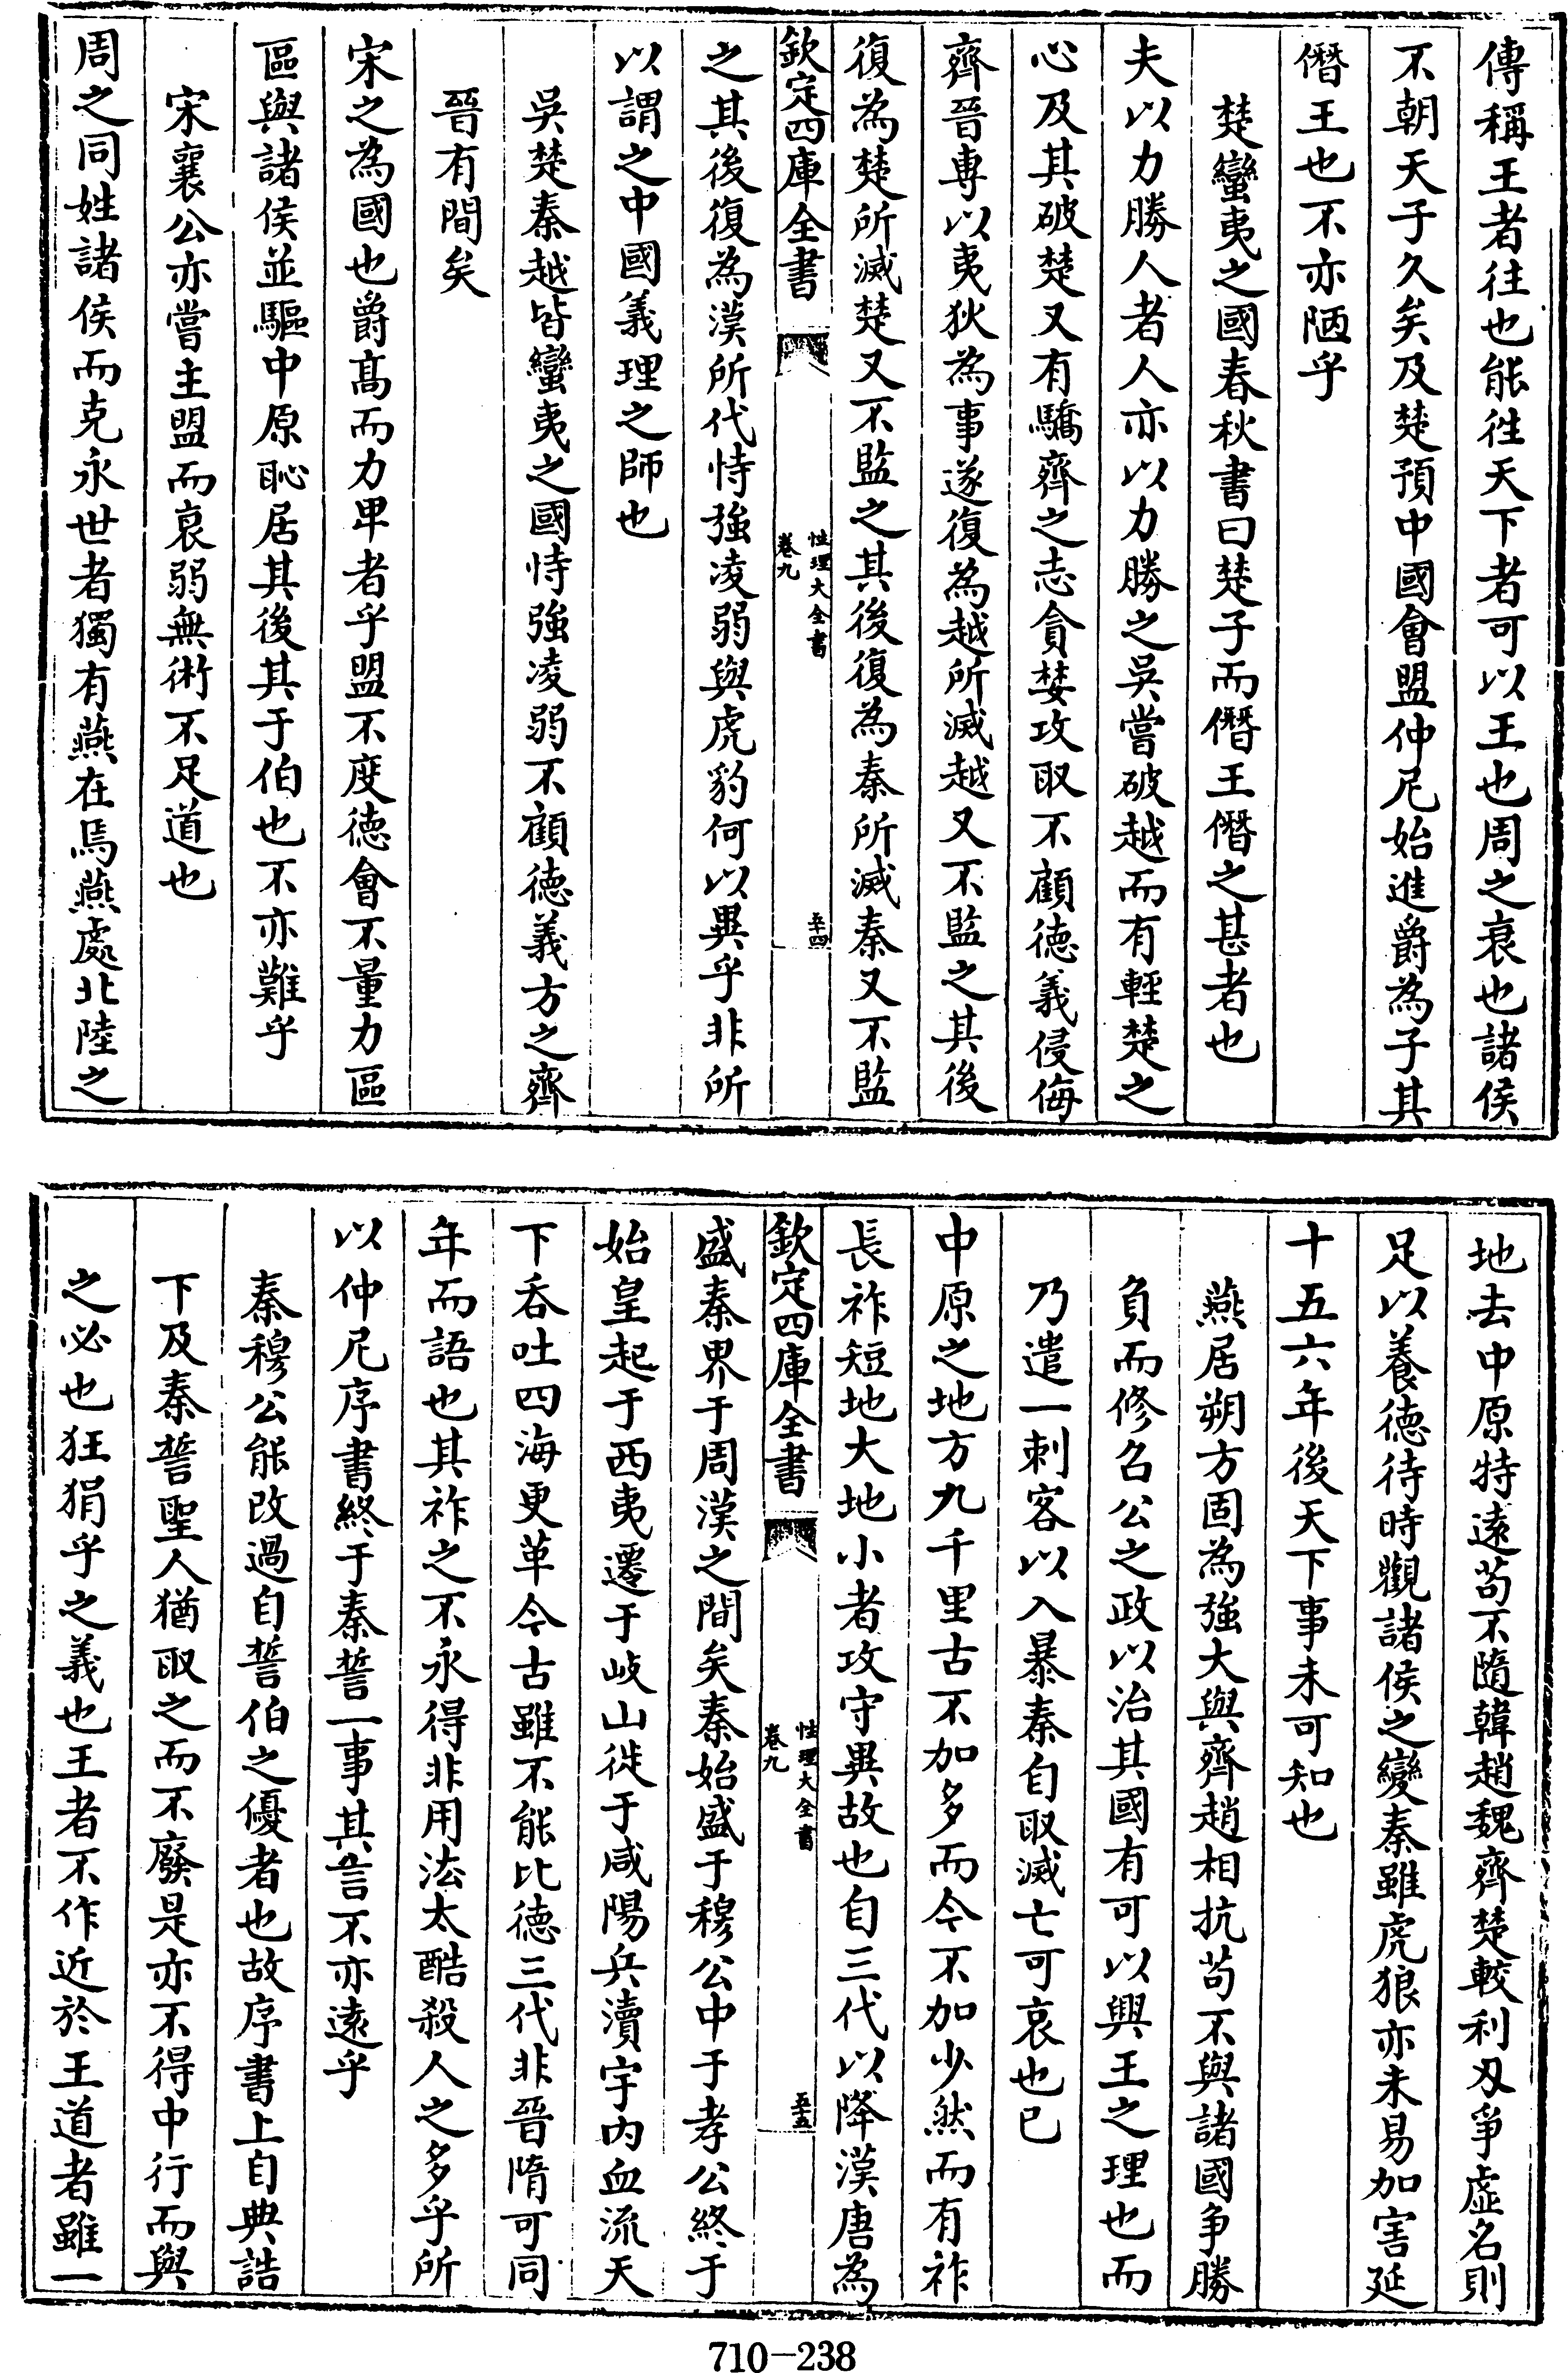 傳稱王者往也能徃天下者可以王也周之衰也諸侯
不朝天子久矣及楚預中國會盟仲尼始進爵為子其
僭王也不亦陋乎
楚蠻夷之國春秋書曰楚子而僭王僭之甚者也
夫以力勝人者人亦以力勝之吳嘗破越而有輕楚之
心及其破楚又有驕齊之志貪婪攻取不顧徳義侵侮
齊晉専以夷狄為事遂復為越所滅越又不監之其後
復為楚所滅楚又不監之其後復為秦所滅秦又不監
欽定四庫全書
性理大全書
卷九
五十四
之其後復為漢所代恃強凌弱與虎豹何以異乎非所
以謂之中國義理之師也
吳楚秦越皆蠻夷之國恃強凌弱不顧徳義方之齊
晉有間矣
宋之為國也爵髙而力卑者乎盟不度徳會不量力區
區與諸侯並驅中原恥居其後其于伯也不亦難乎
宋襄公亦嘗主盟而哀弱無術不足道也
周之同姓諸侯而克永世者獨有燕在焉燕處北陸之
地去中原特逺苟不隨韓趙魏齊楚較利刃爭虛名則
足以養徳待時觀諸侯之變秦雖虎狼亦未易加害延
十五六年後天下事未可知也
燕居朔方固為強大與齊趙相抗苟不與諸國爭勝
負而修召公之政以治其國有可以興王之理也而
乃遣一刺客以入暴秦自取滅亡可哀也已
中原之地方九千里古不加多而今不加少然而有祚
長祚短地大地小者攻守異故也自三代以降漢唐為
欽定四庫全書
性理大全書
卷九
五十五
盛秦界于周漢之間矣秦始盛于穆公中于孝公終于
始皇起于西夷遷于岐山徙于咸陽兵瀆宇内血流天
下吞吐四海更革今古雖不能比徳三代非晉隋可同
年而語也其祚之不永得非用法太酷殺人之多乎所
以仲尼序書終于秦誓一事其言不亦逺乎
秦穆公能改過自誓伯之優者也故序書上自典誥
下及秦誓聖人猶取之而不廢是亦不得中行而與
之必也狂狷乎之義也王者不作近於王道者雖一
710-238